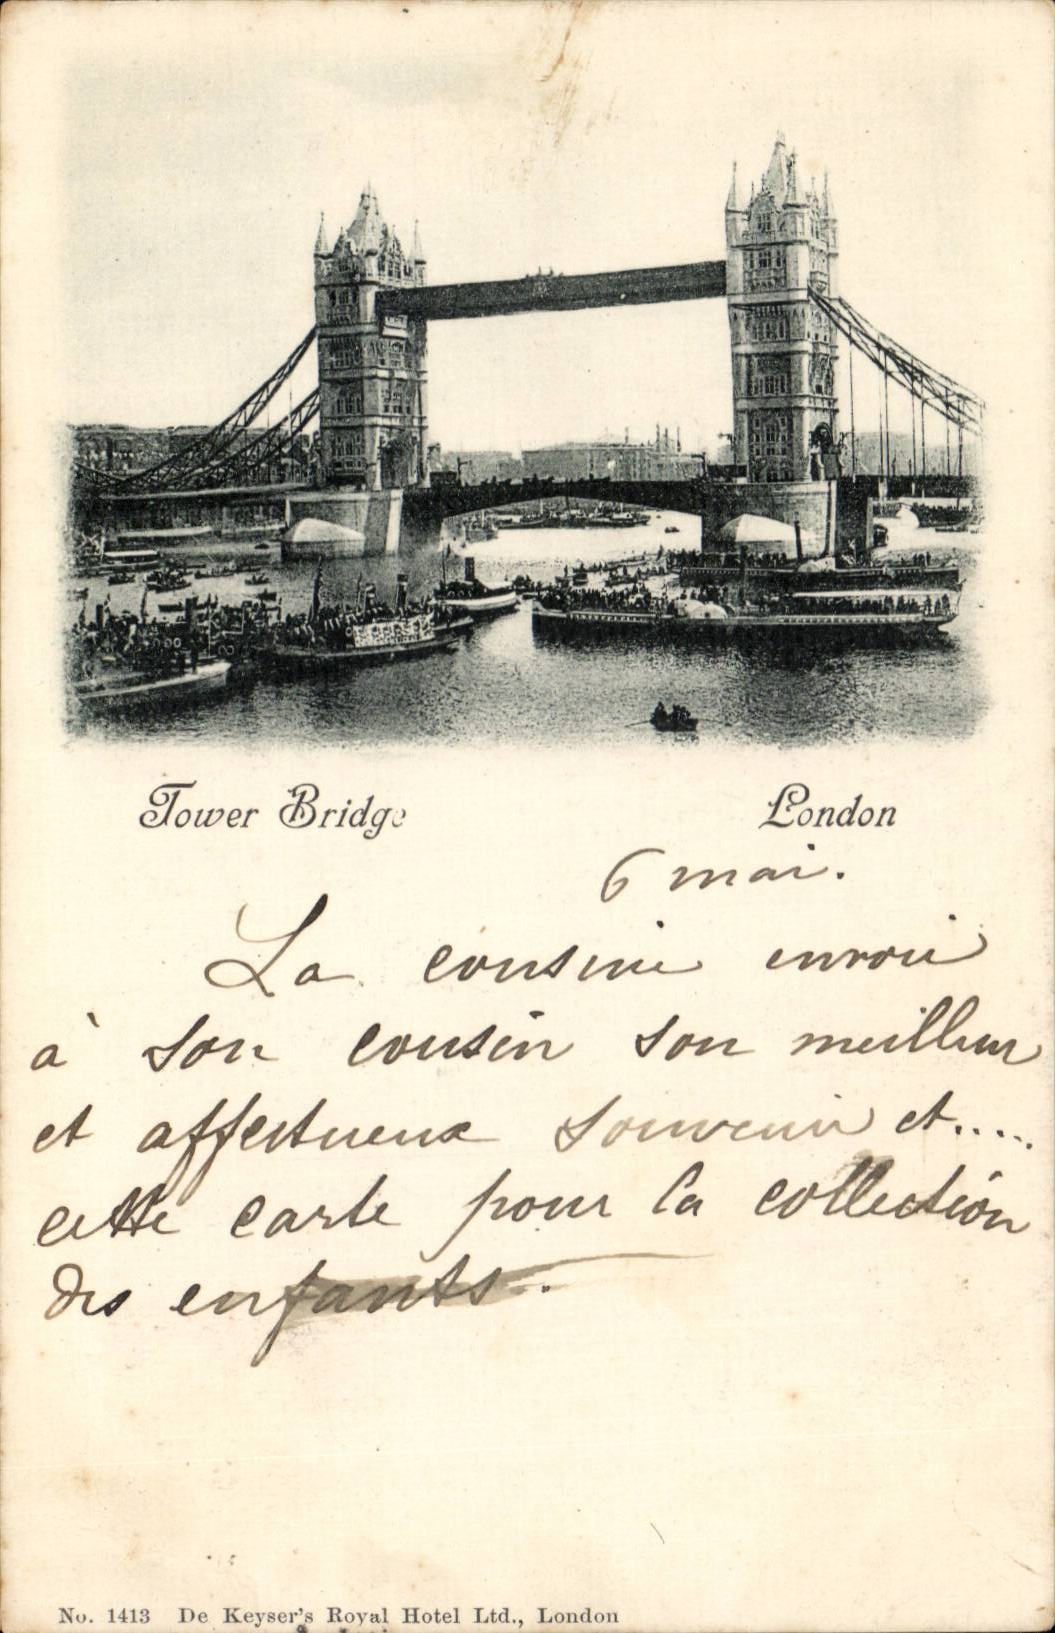 Tower Bridge London
6 mai.
La cousine envoie
à son cousin son meilleur
et affectueux souvenir et.....
cette carte pour la collection
des enfants.
No. 1413 De Keyser's Royal Hotel Ltd., London